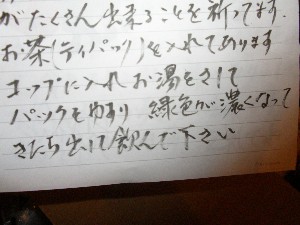 がたくさん出来ることを祈ってます.
お茶(ティパック)を入れてあります
コップに入れお湯をさして
パックをゆすり 緑色が濃くなって
きたら出して飲んで下さい